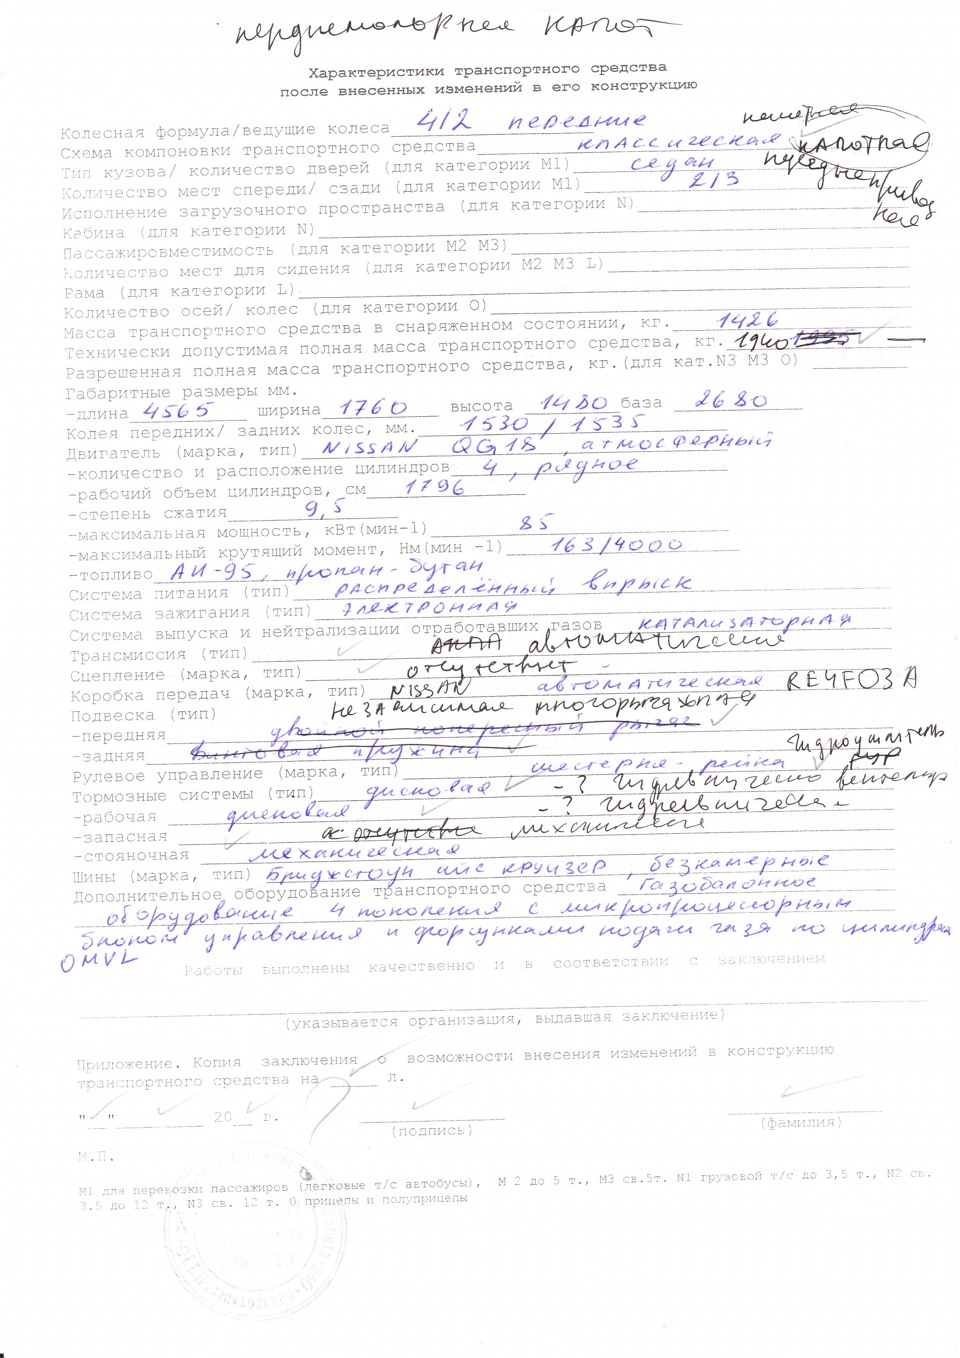 КАПОТ
Характеристики транспортного средства
после внесенных изменений в его конструкцию
Колесная формула/ведущие колеса 4/2 передние
Схема компоновки транспортного средства классическая КАПОТНАЯ
Тип кузова/ количество дверей (для категории М1) седан
Количество мест спереди/ сзади (для категории М1) 2/3
Исполнение загрузочного пространства (для категории N)
Кабина (для категории N)
Пассажировместимость (для категории М2 М3)
Количество мест для сидения (для категории М2 М3 L)
Рама (для категории L)
Количество осей/ колес (для категории О)
Масса транспортного средства в снаряженном состоянии, кг. 1426
Технически допустимая полная масса транспортного средства, кг. 1940 1995
Разрешенная полная масса транспортного средства, кг.(для кат.N3 М3 О)
Габаритные размеры мм.
-длина 4565 ширина 1760 высота 1480 база 2680
Колея передних/ задних колес, мм. 1530 / 1535
Двигатель (марка, тип) NISSAN QG18, атмосферный
-количество и расположение цилиндров 4, рядное
-рабочий объем цилиндров, см 1796
-степень сжатия 9,5
-максимальная мощность, кВт(мин-1) 85
-максимальный крутящий момент, Нм(мин -1) 163/4000
-топливо АИ-95, пропан-бутан
Система питания (тип) распределённый впрыск
Система зажигания (тип) электронная
Система выпуска и нейтрализации отработавших газов катализаторная
Трансмиссия (тип) АКПП автоматическая
Сцепление (марка, тип) отсутствует
Коробка передач (марка, тип) NISSAN автоматическая RE4F03A
Подвеска (тип) независимая многорычажная
-передняя двойной поперечный рычаг
-задняя винтовая пружина
Рулевое управление (марка, тип) шестерня-рейка гидроусилитель ГУР
Тормозные системы (тип) дисковая -?
-рабочая дисковая -?
-запасная механическая
-стояночная механическая
Шины (марка, тип) Бриджстоун айс крузер, безкамерные
Дополнительное оборудование транспортного средства Газобалонное
оборудование 4 поколения с микропроцессорным
блоком управления и форсунками подачи газа по цилиндрам
OMVL
Работы выполнены качественно и в соответствии с заключением
(указывается организация, выдавшая заключение)
Приложение. Копия заключения о возможности внесения изменений в конструкцию
транспортного средства на ____ л.
"__"________ 20__ г.
(подпись) (фамилия)
М.П.
М1 для перевозки пассажиров (легковые т/с автобусы), М 2 до 5 т., М3 св.5т. N1 грузовой т/с до 3,5 т., N2 св.
3.5 до 12 т., N3 св. 12 т. О прицепы и полуприцепы